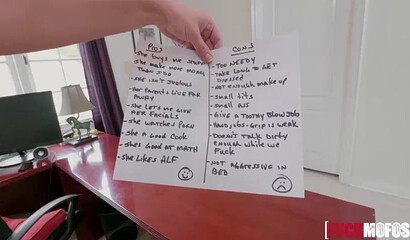 Pros
- She buys me stuff
- She make more money
than I do
- She isn't jealous
- Her parents live far
away
- She lets me give
her facials
- She watches porn
- She a good cook
- She's good at math
- She likes ALF
Cons
- Too needy
- Take long to get
dressed
- Not enough makeup
- Small tits
- Small ass
- Give a toothy blow job
- Handjobs - grip is weak
- Doesn't talk dirty
enough while we
fuck
- Not aggressive in
bed
MOFOS